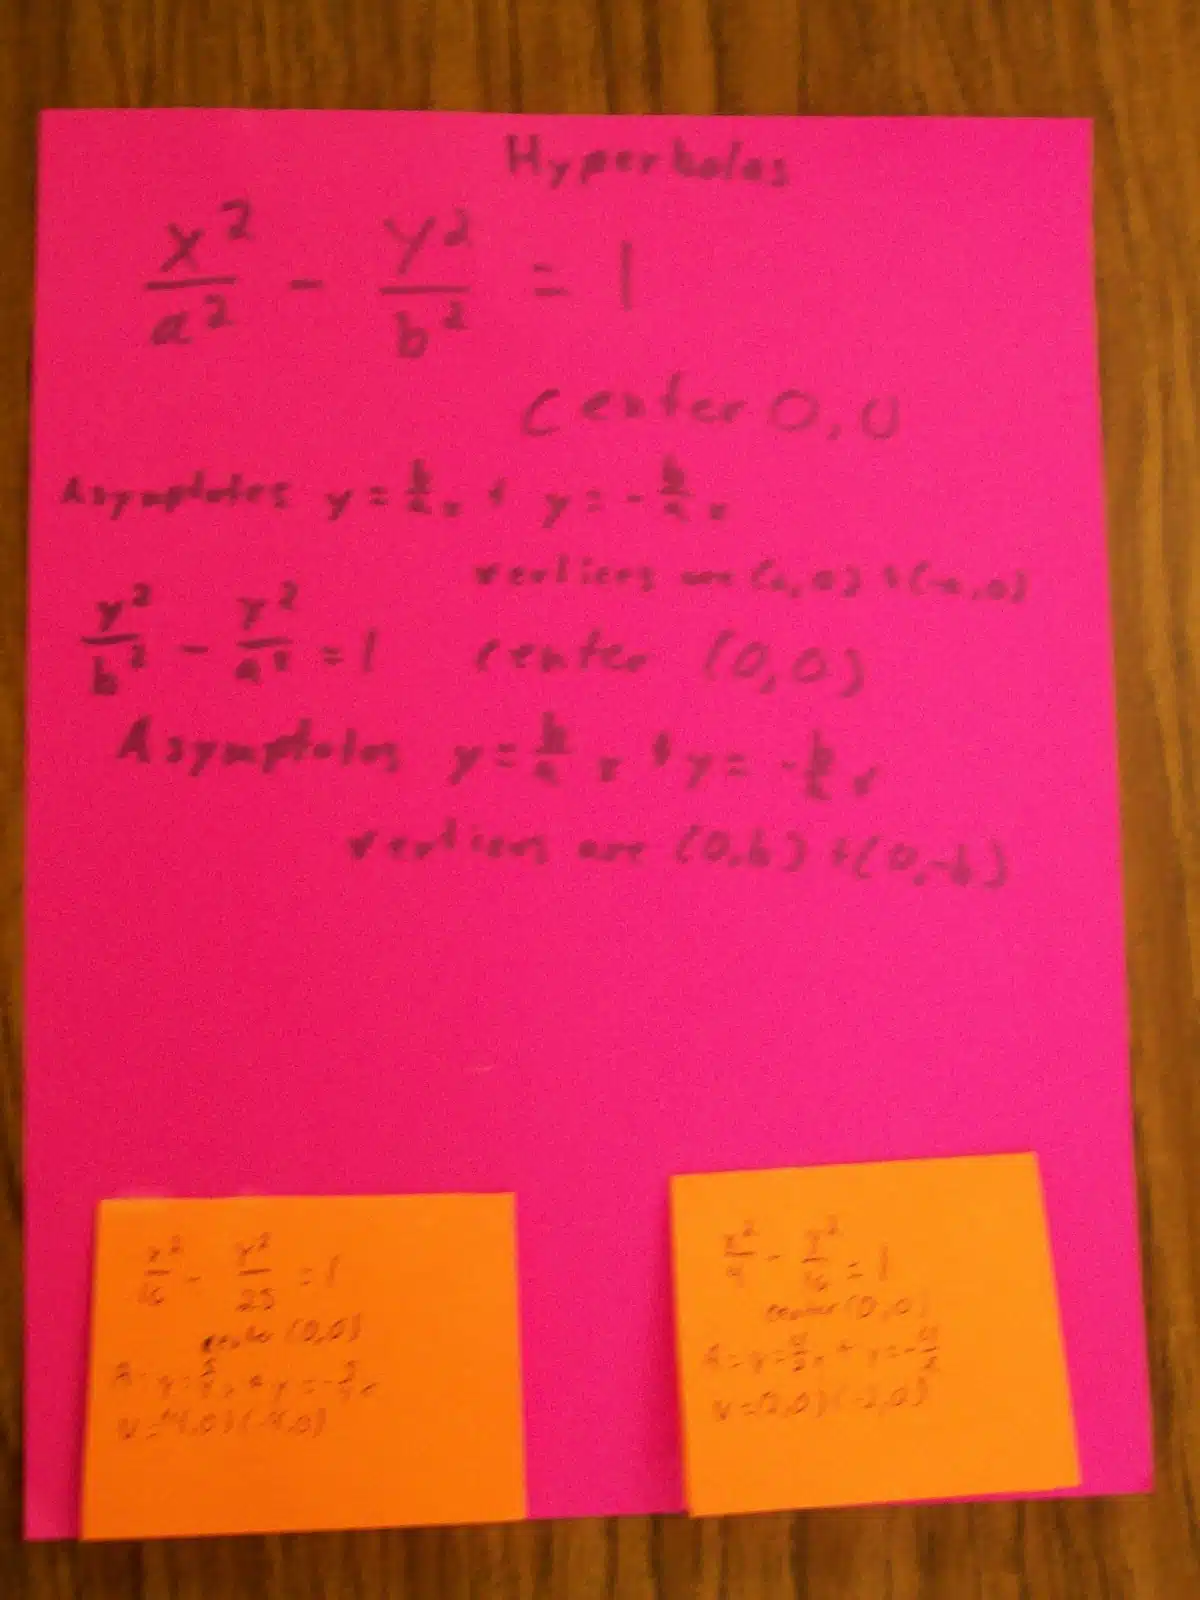 Hyperbolas
x²/a² - y²/b² = 1
Center 0,0
Asymptotes y = b/a x + y = - b/a x
vertices are (a,0) + (-a,0)
y²/b² - y²/a² = 1 center (0,0)
Asymptotes y = b/a x + y = - b/a x
vertices are (0,b) + (0,-b)
x²/16 - y²/25 = 1
center (0,0)
A = y = 5/4 x + y = - 5/4 x
V = (4,0) (-4,0)
x²/4 - y²/16 = 1
center (0,0)
V = (2,0) (-2,0)